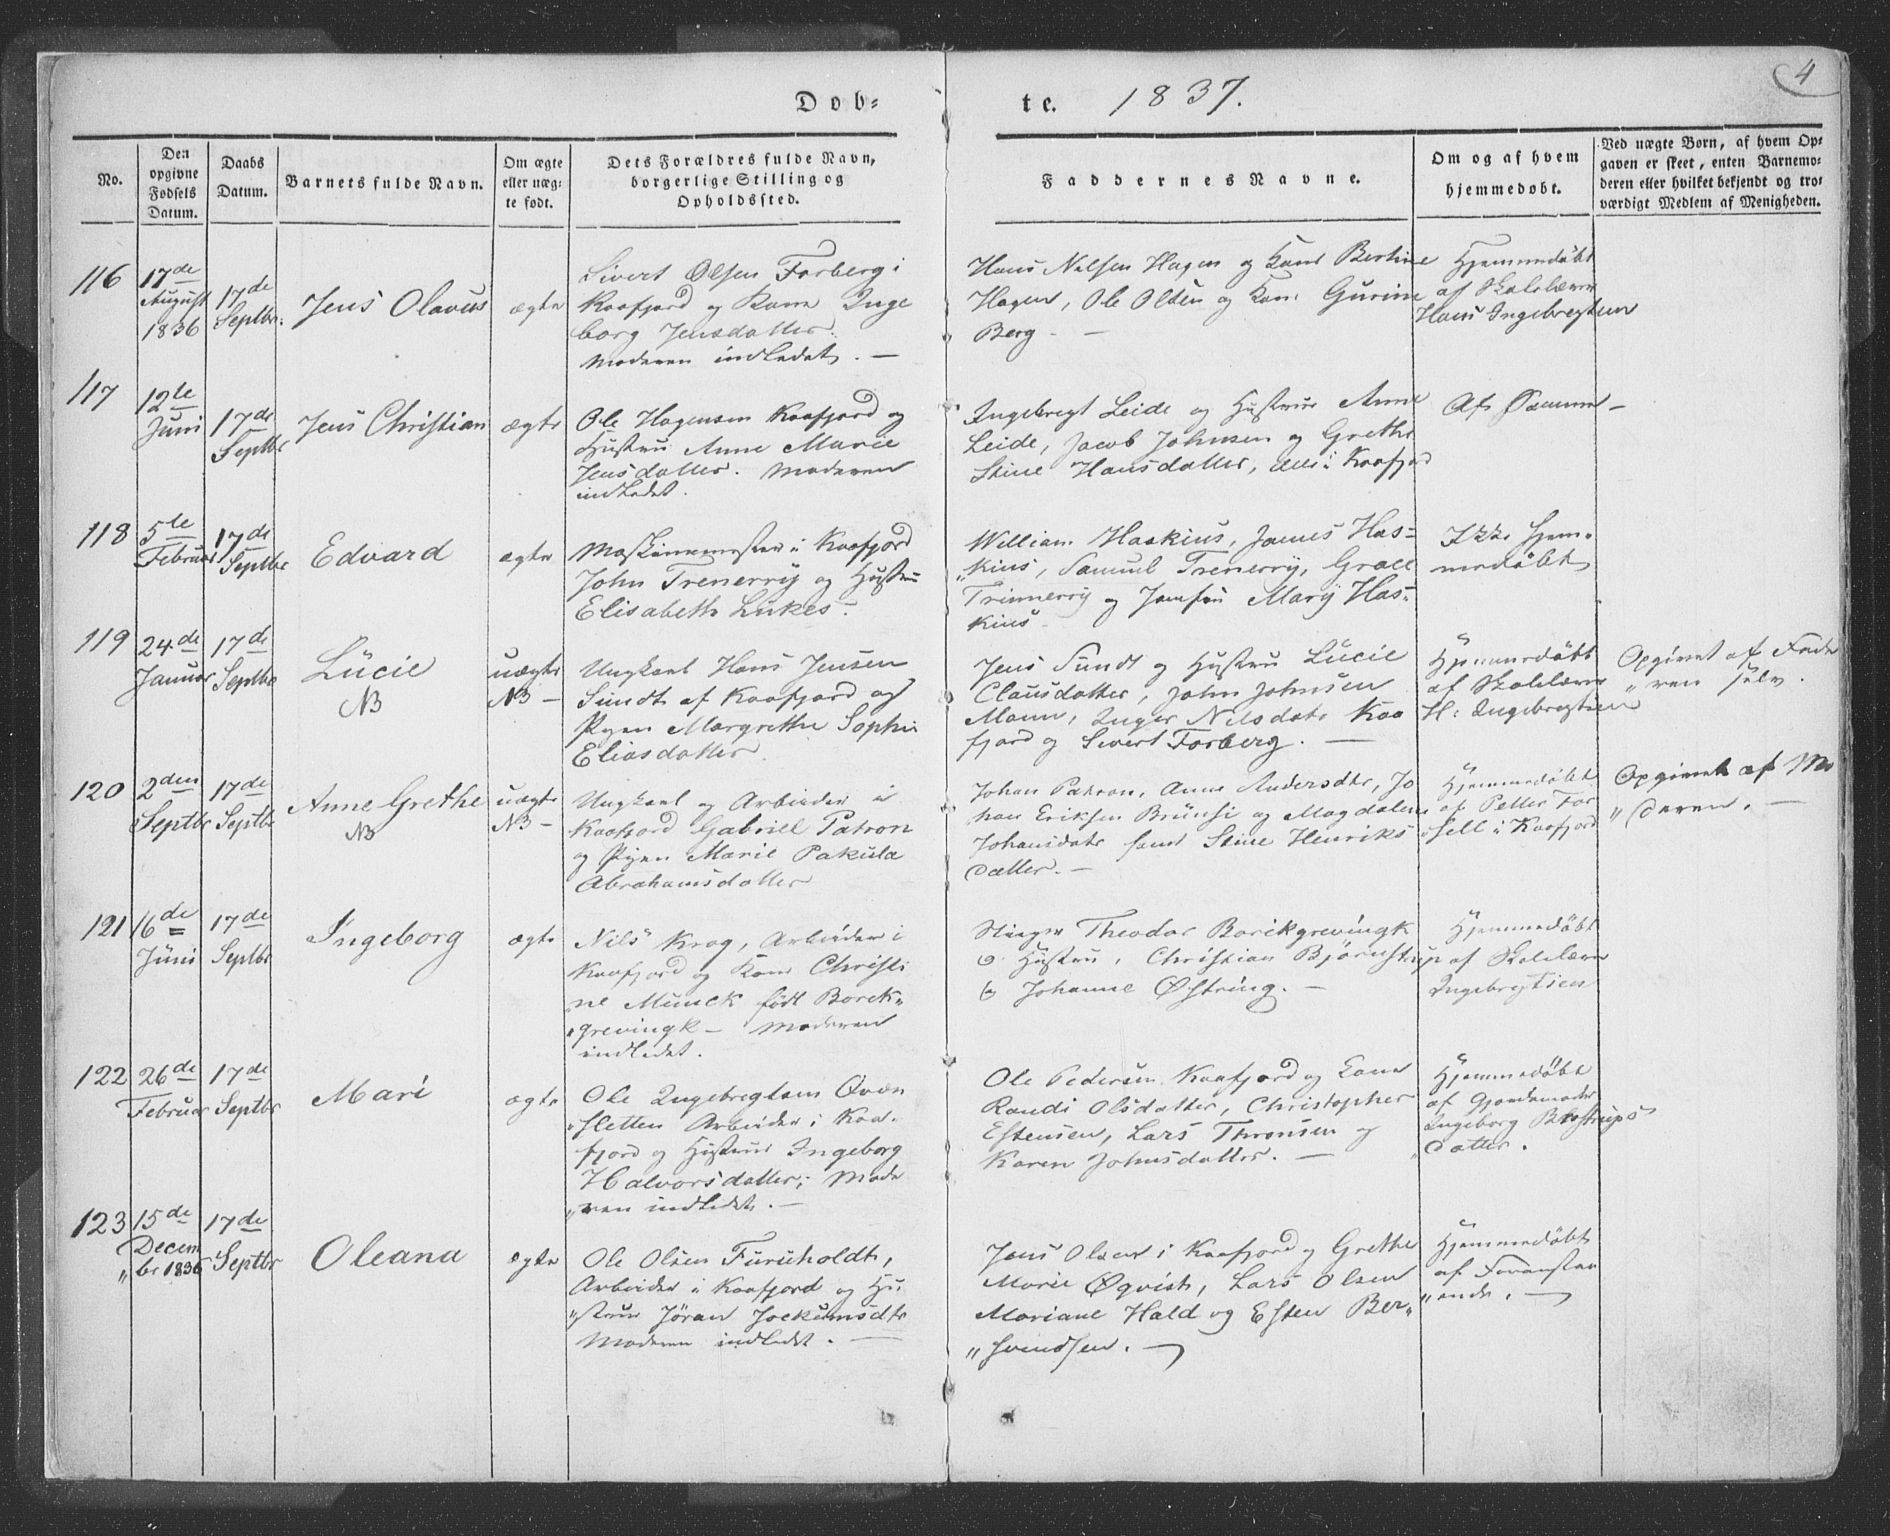 4
Døb-
te. 1837.
No.
Den opgivne Fødsels Datum.
Daabs Datum.
Barnets fulde Navn.
Om ægte eller uæg- te født.
Dets Forældres fulde Navn, borgerlige Stilling og Opholdssted.
Faddernes Navne.
Om og af hvem hjemmedøbt.
Ved uægte Børn, af hvem Op- gaven er skeet, enten Barnemo- deren eller hvilket bekjendt og tro- værdigt Medlem af Menigheden.
116
17de
August
1836
17de
Septbr.
Jens Olavus
ægte
Sivert Olsen Forberg i
Kaafjord og Kone Inge
borg Jensdatter.
Moderen indledet. —
Hans Nilsen Hagen og Kone Bertine
Hagen, Ole Olsen og Kone Gurine
Berg. —
Hjemmedøbt
af Skolelærer
Hans Ingebregtsen
117
12te
Juni
17de
Septbr
Jens Christian
ægte
Ole Hagensen Kaafjord og
Hustru Anne Marie
Jensdatter. Moderen
indledet.
Ingebregt Leide og Hustrue Anne
Leide, Jacob Johnsen og Grethe
Stine Hansdatter, alle i Kaafjord
Af Samme —
118
5te
Februar
17de
Septbr
Edvard
ægte
Maskinemester i Kaafjord
John Trenerry og Hustru
Elisabeth Lukes.
William Haskius, James Has-
„kius, Samuel Trenerry, Grace
Trinnerry og Jomfru Mary Has-
kius.
Ikke Hjem-
medøbt
119
24de
Januar
17de
Septbr
Lücie
NB
uægte
NB —
Ungkarl Hans Jensen
Sundt af Kaafjord og
Pigen Margrethe Sophie
Eliasdatter.
Jens Sundt og Hustru Lücie
Clausdatter, John Johnsen
Moun, Inger Nilsdatr Kaa
fjord og Sivert Forberg. —
Hjemmedøbt
af Skolelærer
H: Ingebregtsen
Opgivet af Fade
„ren selv.
120
2den
Septbr
17de
Septbr
Anne Grethe
NB
uægte
NB —
Ungkarl og Arbeider i
Kaafjord Gabriel Patron
og Pigen Marie Pakula
Abrahamsdatter
Johan Patron, Anne Andersdtr, Jo
han Eriksen Brünsi og Magdalene
Johansdatr samt Stine Henriks
datter. —
Hjemmedøbt
af Petter For
„sell i Kaafjord
Opgivet af Mo
„deren. —
121
16de
Jüni
17de
Septbr
Ingeborg
ægte
Nils Krog, Arbeider i
Kaafjord og Kone Christi
ne Munck født Borck-
„grevingk — Moderen
indledet.
Theodor Borckgrevingk
og Hustru, Christian Bjørnstrup
og Johanne Østring. —
Hjemmedøbt
af Skolelærer
Ingebregtsen
122
26de
Februar
17de
Septbr
Mari
ægte
Ole Ingebregtsen Qvæn
„sletten Arbeider i Kaa-
fjord og Hustrue Ingeborg
Halvorsdatter; Mode
„ren indledet. —
Ole Pedersen Kaafjord og Kone
Randi Olsdatter, Christopher
Estensen, Lars Thronsen og
Karen Johnsdatter. —
Hjemmedøbt
af Gjordemoder
Ingeborg Brostrups
datter.
123
15de
Decem
„br 1836
17de
Septbr
Oleana
ægte
Ole Olsen Furuholdt,
Arbeider i Kaafjord og Hu
„strue Jøran Jockumsdtr
Moderen indledet. —
Jens Olsen i Kaafjord og Grethe
Marie Øqvist, Lars Olsen
Mariane Hald og Esten Ber„
„svendsen. —
Hjemmedøbt
af Foranstaa
„ende. —